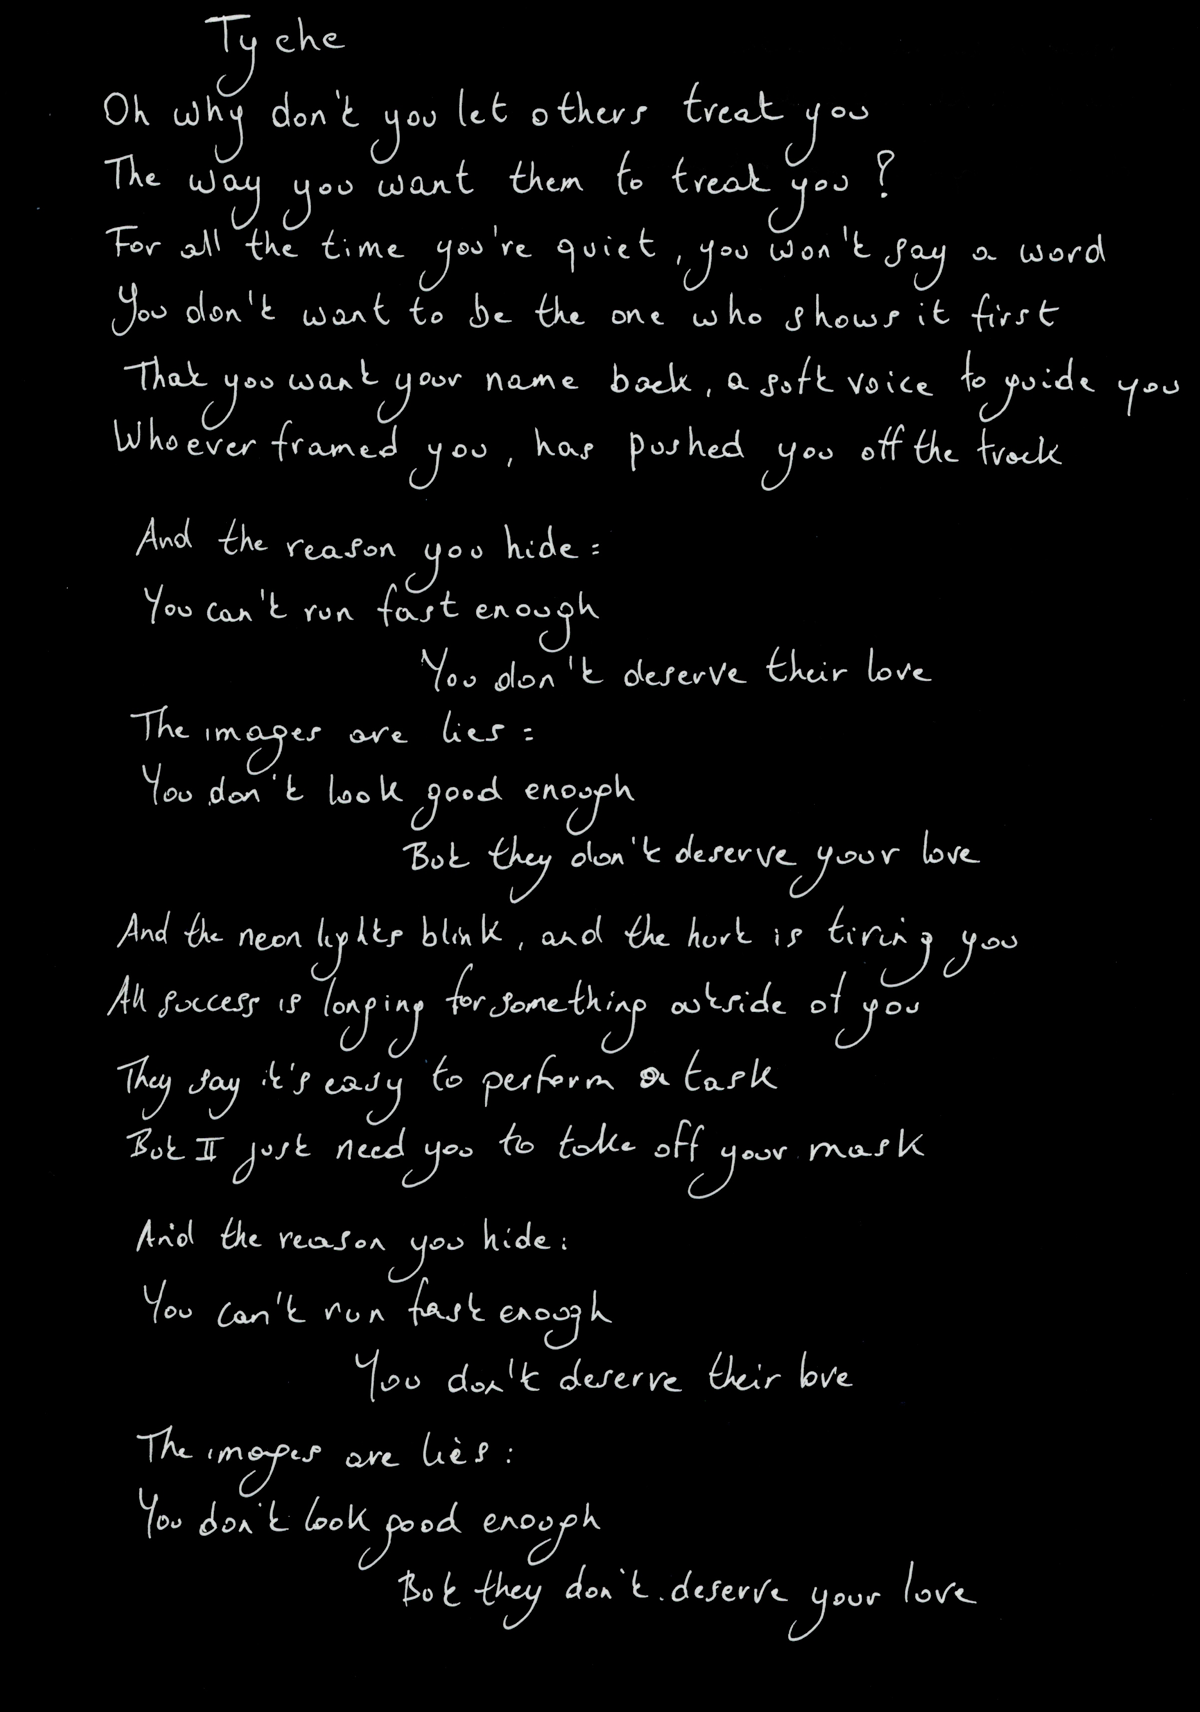 Tyche
Oh why don't you let others treat you
The way you want them to treat you?
For all the time you're quiet, you won't say a word
You don't want to be the one who shows it first
That you want your name back, a soft voice to guide you
Whoever framed you, has pushed you off the track
And the reason you hide:
You can't run fast enough
You don't deserve their love
The images are lies:
You don't look good enough
But they don't deserve your love
And the neon lights blink, and the hurt is tiring you
All success is longing for something outside of you
They say it's easy to perform a task
But I just need you to take off your mask
And the reason you hide:
You can't run fast enough
You don't deserve their love
The images are lies:
You don't look good enough
But they don't deserve your love